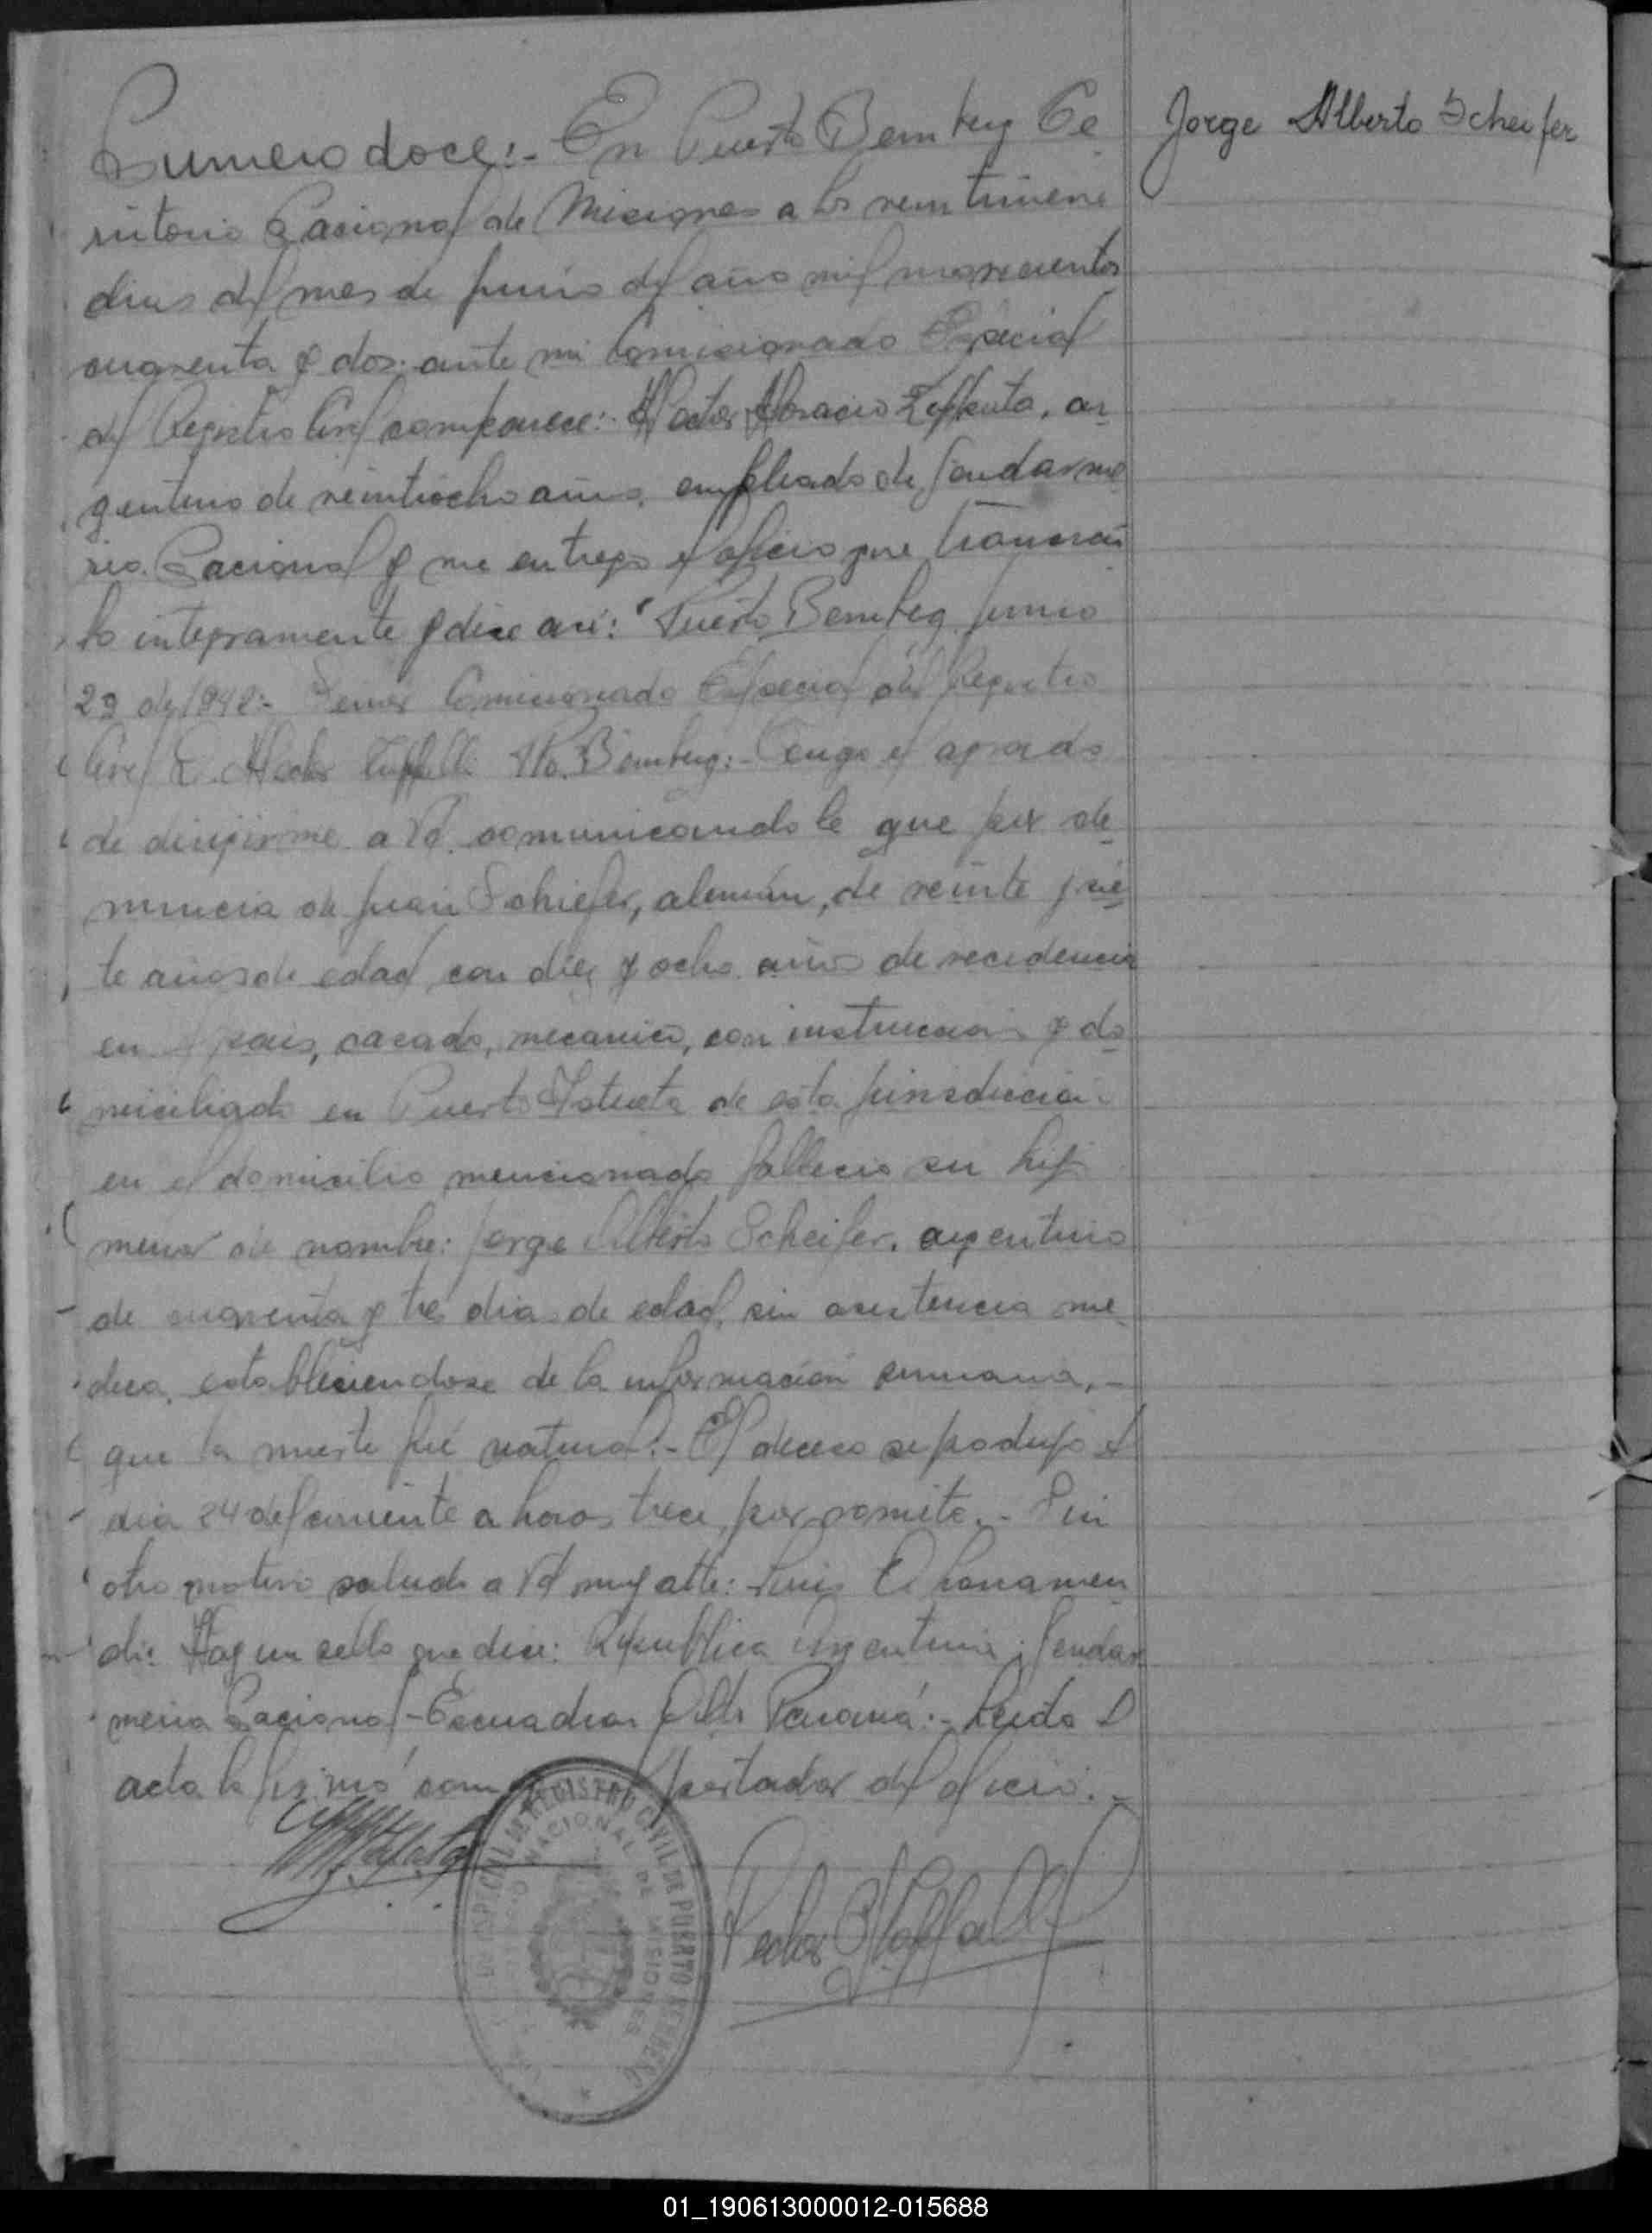 Numero doce:- En Puerto Bemberg Te
rritorio Nacional de Misiones a los veintinueve
dias del mes de junio del año mil novecientos
cuarenta y dos. ante mi Comisionado Especial
del Registro Civil comparece: Hector Horacio ar
gentino de veintiocho años, empleado de Gendarme
ria Nacional y me entrega el oficio que transcri
bo integramente y dice asi: "Puerto Bemberg Junio
29 de 1942:- Señor Comisionado Especial del Registro
Civil D. Pto. Bemberg:- Tengo el agrado
de dirigirme a Vd. comunicandole que por de
nuncia de Juan Schiefer, alemán, de veinte y sie
te años de edad con diez y ocho años de recidencia
en el pais, casado, mecanico, con instruccion y do
miciliado en Puerto de esta jurisdiccion
en el domicilio mencionado fallecio su hijo
menor de nombre: Jorge Alberto Scheifer, argentino
de cuarenta y tres dias de edad, sin asistencia me
dica, estableciendose de la información sumaria,-
que la muerte fué natural.- El deceso se produjo el
dia 24 del corriente a horas trece, por vomito.- Sin
otro motivo saludo a Vd muy atte: Luis
di: Hay un sello que dice: Republica Argentina, Gendar
meria Nacional - Escuadron Alto Paraná:- Leida el
acta la firmó portador del oficio.-
REGISTRO CIVIL DE PUERTO BEMBERG
NACIONAL DE MISIONES
Jorge Alberto Scheifer
01_190613000012-015688